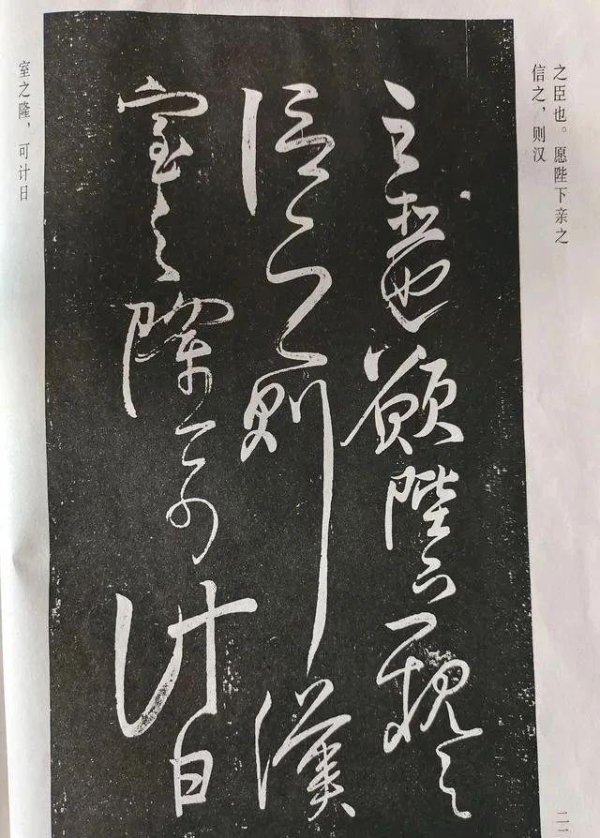 之臣也。愿陛下亲之
信之，则汉
之臣也願陛下親之
信之則漢
室之隆可計日
室之隆，可计日